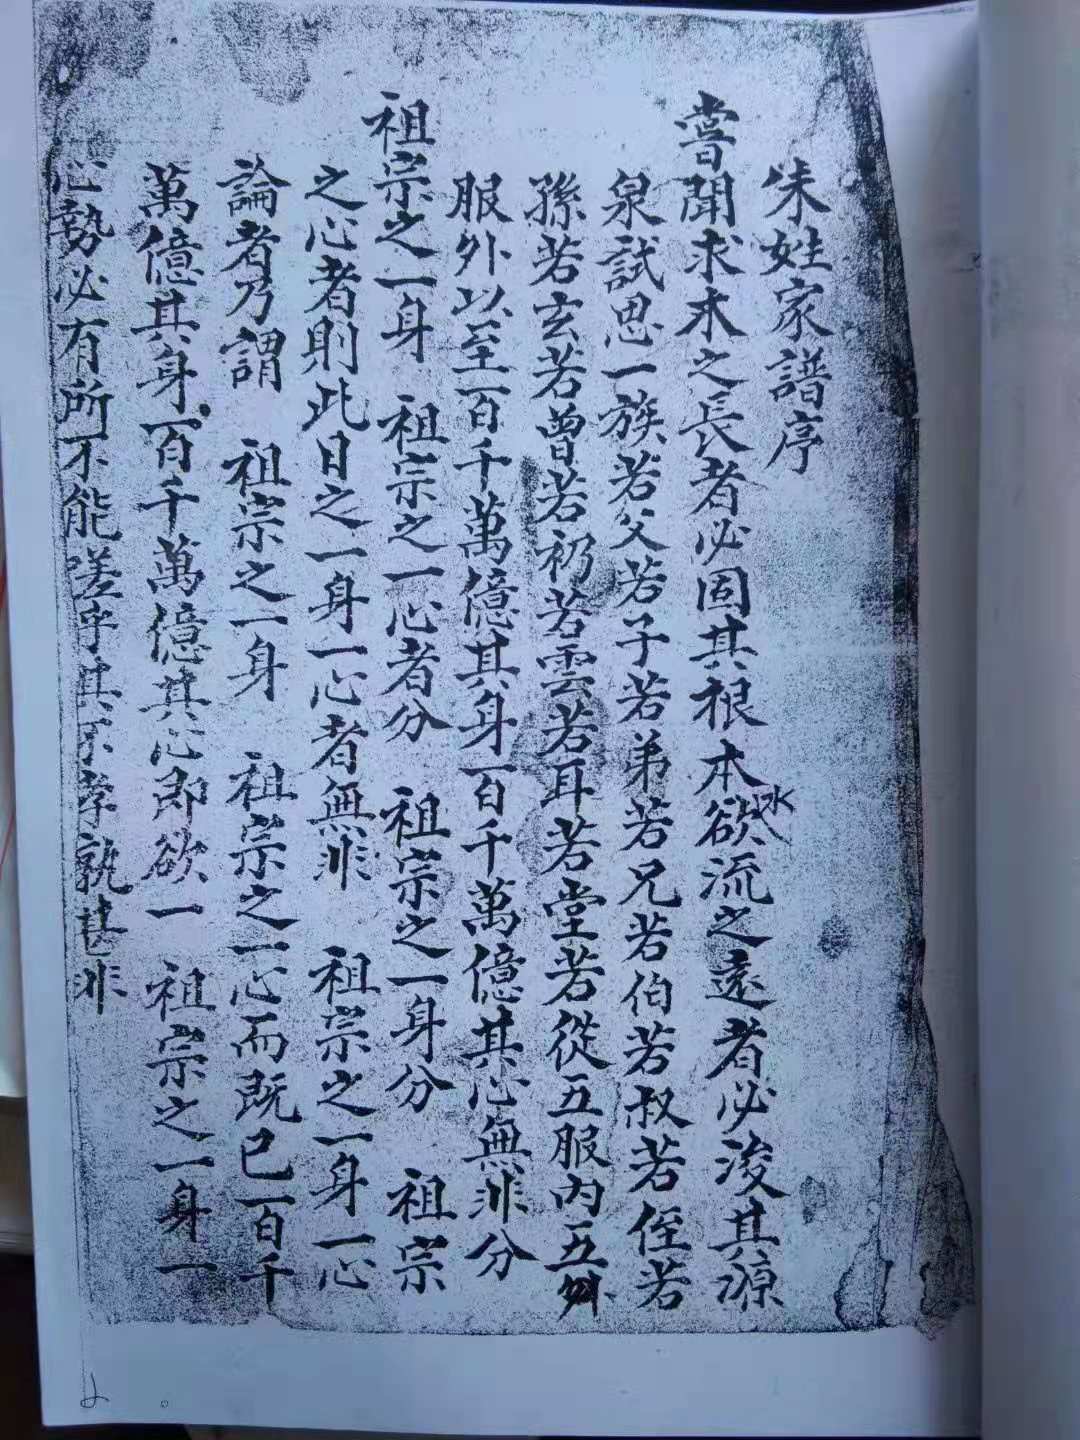 朱姓家譜序
嘗聞求木之長者必固其根本欲流之遠者必浚其源
水
泉試思一族若父若子若弟若兄若伯若叔若侄若
孫若玄若曾若礽若雲若耳若堂若從五服內五
服外以至百千萬億其身百千萬億其心無非分
祖宗之一身 祖宗之一心者分 祖宗之一身分 祖宗
之心者則此日之一身一心者無非 祖宗之一身一心
論者乃謂 祖宗之一身 祖宗之一心而既已百千
萬億其身百千萬億其心即欲一 祖宗之一身一
心勢必有所不能嗟乎其不孝孰甚非